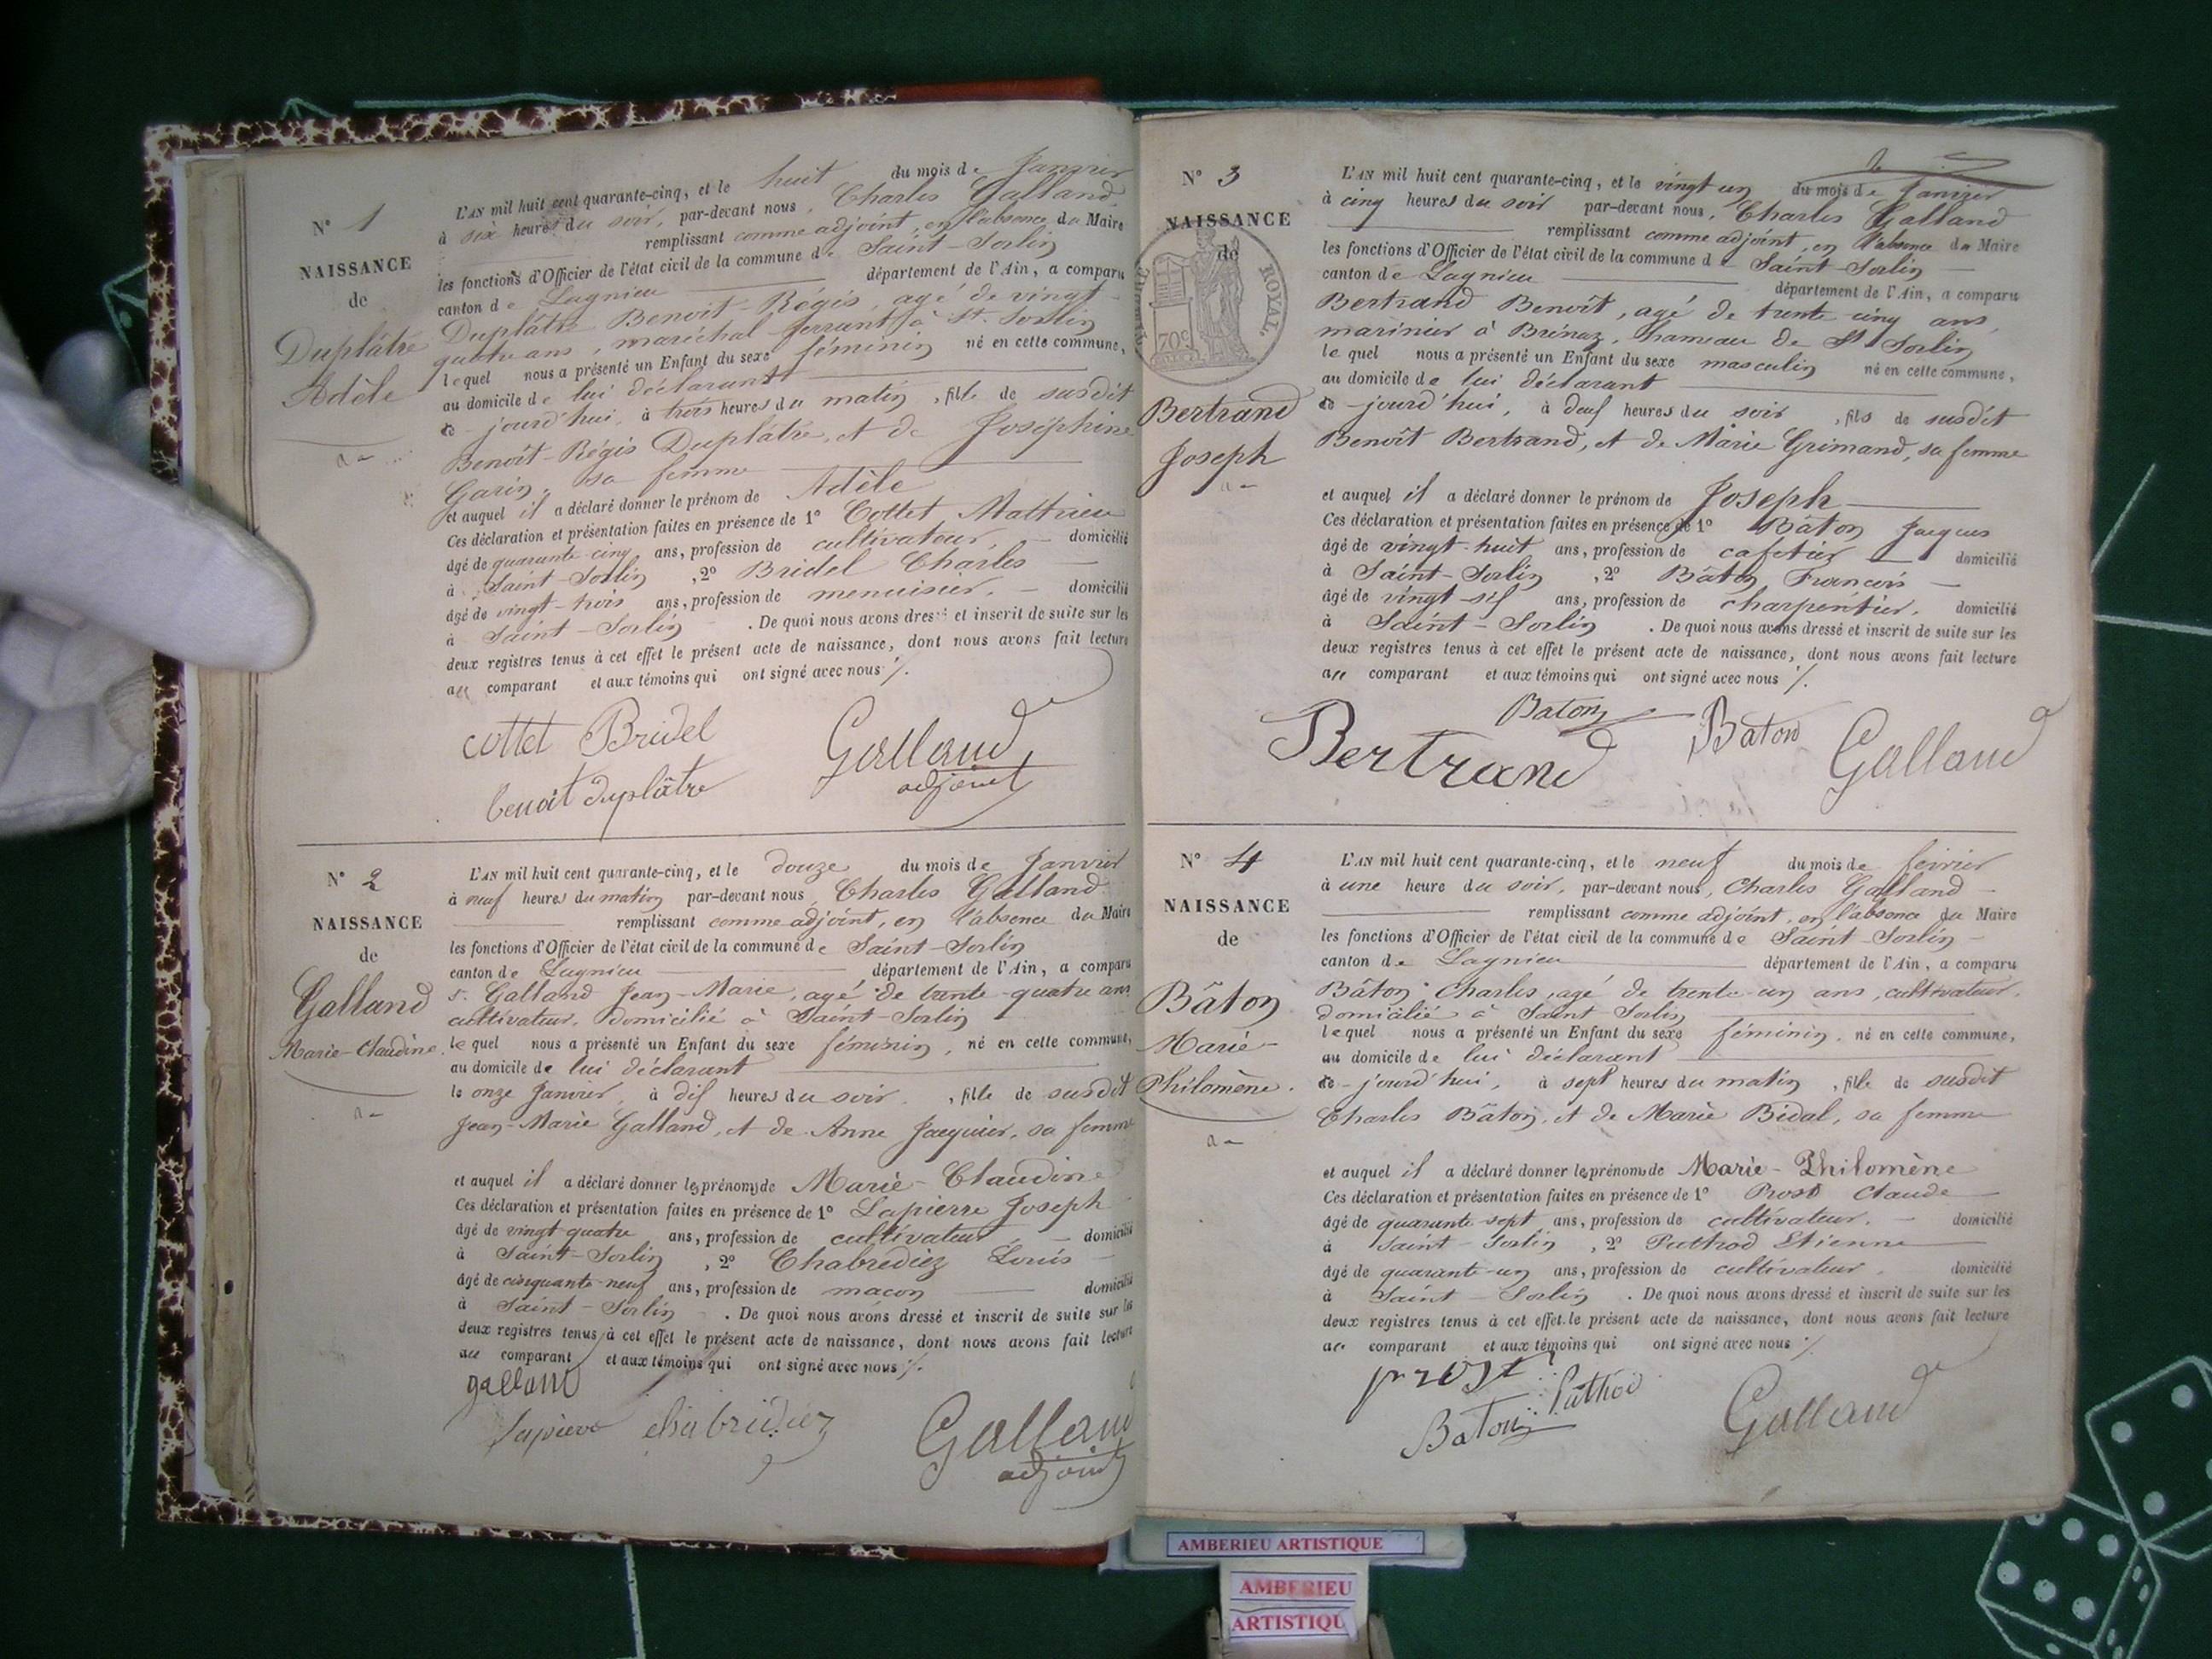 N° 1
NAISSANCE
de
Duplâtre
Adèle
L'AN mil huit cent quarante-cinq, et le huit du mois de Janvier
à six heures du soir, par-devant nous, Charles Galland,
remplissant comme adjoint, en l'absence du Maire
les fonctions d'Officier de l'état civil de la commune de Saint-Sorlin
canton de Lagnieu département de l'Ain, a comparu
Duplâtre Benoit-Régis, agé de vingt-
quatre ans, maréchal-ferrant, à St. Sorlin
lequel nous a présenté un Enfant du sexe féminin né en cette commune,
au domicile de lui déclarant
ce-jourd'hui, à trois heures du matin, fille de susdit
Benoît-Régis Duplâtre, et de Joséphine
Garin, sa femme
et auquel il a déclaré donner le prénom de Adèle
Ces déclaration et présentation faites en présence de 1° Cottet Mathieu
âgé de quarante-cinq ans, profession de cultivateur, domicilié
à Saint-Sorlin, 2° Bridel Charles
âgé de vingt-trois ans, profession de menuisier, domicilié
à Saint-Sorlin. De quoi nous avons dressé et inscrit de suite sur les
deux registres tenus à cet effet le présent acte de naissance, dont nous avons fait lecture
au comparant et aux témoins qui ont signé avec nous ./.
cottet Bridel
Galland
adjoint
benoit duplâtre
N° 2
NAISSANCE
de
Galland
Marie-Claudine.
L'AN mil huit cent quarante-cinq, et le douze du mois de Janvier
à neuf heures du matin par-devant nous, Charles Galland
remplissant comme adjoint, en l'absence du Maire
les fonctions d'Officier de l'état civil de la commune de Saint-Sorlin
canton de Lagnieu département de l'Ain, a comparu
s. Galland Jean-Marie, agé de trente-quatre ans
cultivateur, domicilié à Saint-Sorlin
lequel nous a présenté un Enfant du sexe féminin, né en cette commune,
au domicile de lui déclarant
le onze Janvier, à dix heures du soir, fille de susdit
Jean-Marie Galland, et de Anne Jacquier, sa femme
et auquel il a déclaré donner les prénoms de Marie-Claudine
Ces déclaration et présentation faites en présence de 1° Lapierre Joseph
âgé de vingt quatre ans, profession de cultivateur domicilié
à Saint-Sorlin, 2° Chabrediez Louis
âgé de cinquante-neuf ans, profession de macon domicilié
à Saint-Sorlin. De quoi nous avons dressé et inscrit de suite sur les
deux registres tenus à cet effet le présent acte de naissance, dont nous avons fait lecture
au comparant et aux témoins qui ont signé avec nous ./.
galland
Lapierre chabridiez
Galland
adjoint
N° 3
NAISSANCE
de
ROYAL.
70c
Bertrand
Joseph
L'AN mil huit cent quarante-cinq, et le vingt un du mois de Janvier
à cinq heures du soir par-devant nous, Charles Galland
remplissant comme adjoint, en l'absence du Maire
les fonctions d'Officier de l'état civil de la commune de Saint-Sorlin
canton de Lagnieu département de l'Ain, a comparu
Bertrand Benoît, agé de trente cinq ans,
marinier à Brénaz, hameau de St Sorlin
lequel nous a présenté un Enfant du sexe masculin né en cette commune,
au domicile de lui déclarant
ce-jourd'hui, à deux heures du soir, fils de susdit
Benoît Bertrand, et de Marie Grimand, sa femme
et auquel il a déclaré donner le prénom de Joseph
Ces déclaration et présentation faites en présence de 1° Bâton Jacques
âgé de vingt-huit ans, profession de cafetier domicilié
à Saint-Sorlin, 2° Bâton François
âgé de vingt-six ans, profession de charpentier. domicilié
à Saint-Sorlin. De quoi nous avons dressé et inscrit de suite sur les
deux registres tenus à cet effet le présent acte de naissance, dont nous avons fait lecture
au comparant et aux témoins qui ont signé avec nous ./.
Baton
Bertrand Baton Galland
N° 4
NAISSANCE
de
Bâton
Marie-
Philomène.
L'AN mil huit cent quarante-cinq, et le neuf du mois de février
à une heure du soir, par-devant nous, Charles Galland
remplissant comme adjoint, en l'absence du Maire
les fonctions d'Officier de l'état civil de la commune de Saint-Sorlin
canton de Lagnieu département de l'Ain, a comparu
Bâton Charles, agé de trente-un ans, cultivateur,
domicilié à Saint Sorlin
lequel nous a présenté un Enfant du sexe féminin, né en cette commune,
au domicile de lui déclarant
ce-jourd'hui, à sept heures du matin, fille de susdit
Charles Bâton, et de Marie Bidal, sa femme
et auquel il a déclaré donner les prénoms de Marie-Philomène
Ces déclaration et présentation faites en présence de 1° Prost Claude
âgé de quarante-sept ans, profession de cultivateur. domicilié
à Saint-Sorlin, 2° Puthod Etienne
âgé de quarante-un ans, profession de cultivateur. domicilié
à Saint-Sorlin. De quoi nous avons dressé et inscrit de suite sur les
deux registres tenus à cet effet le présent acte de naissance, dont nous avons fait lecture
au comparant et aux témoins qui ont signé avec nous ./.
prost
Baton Puthod Galland
AMBERIEU ARTISTIQUE
AMBERIEU
ARTISTIQU